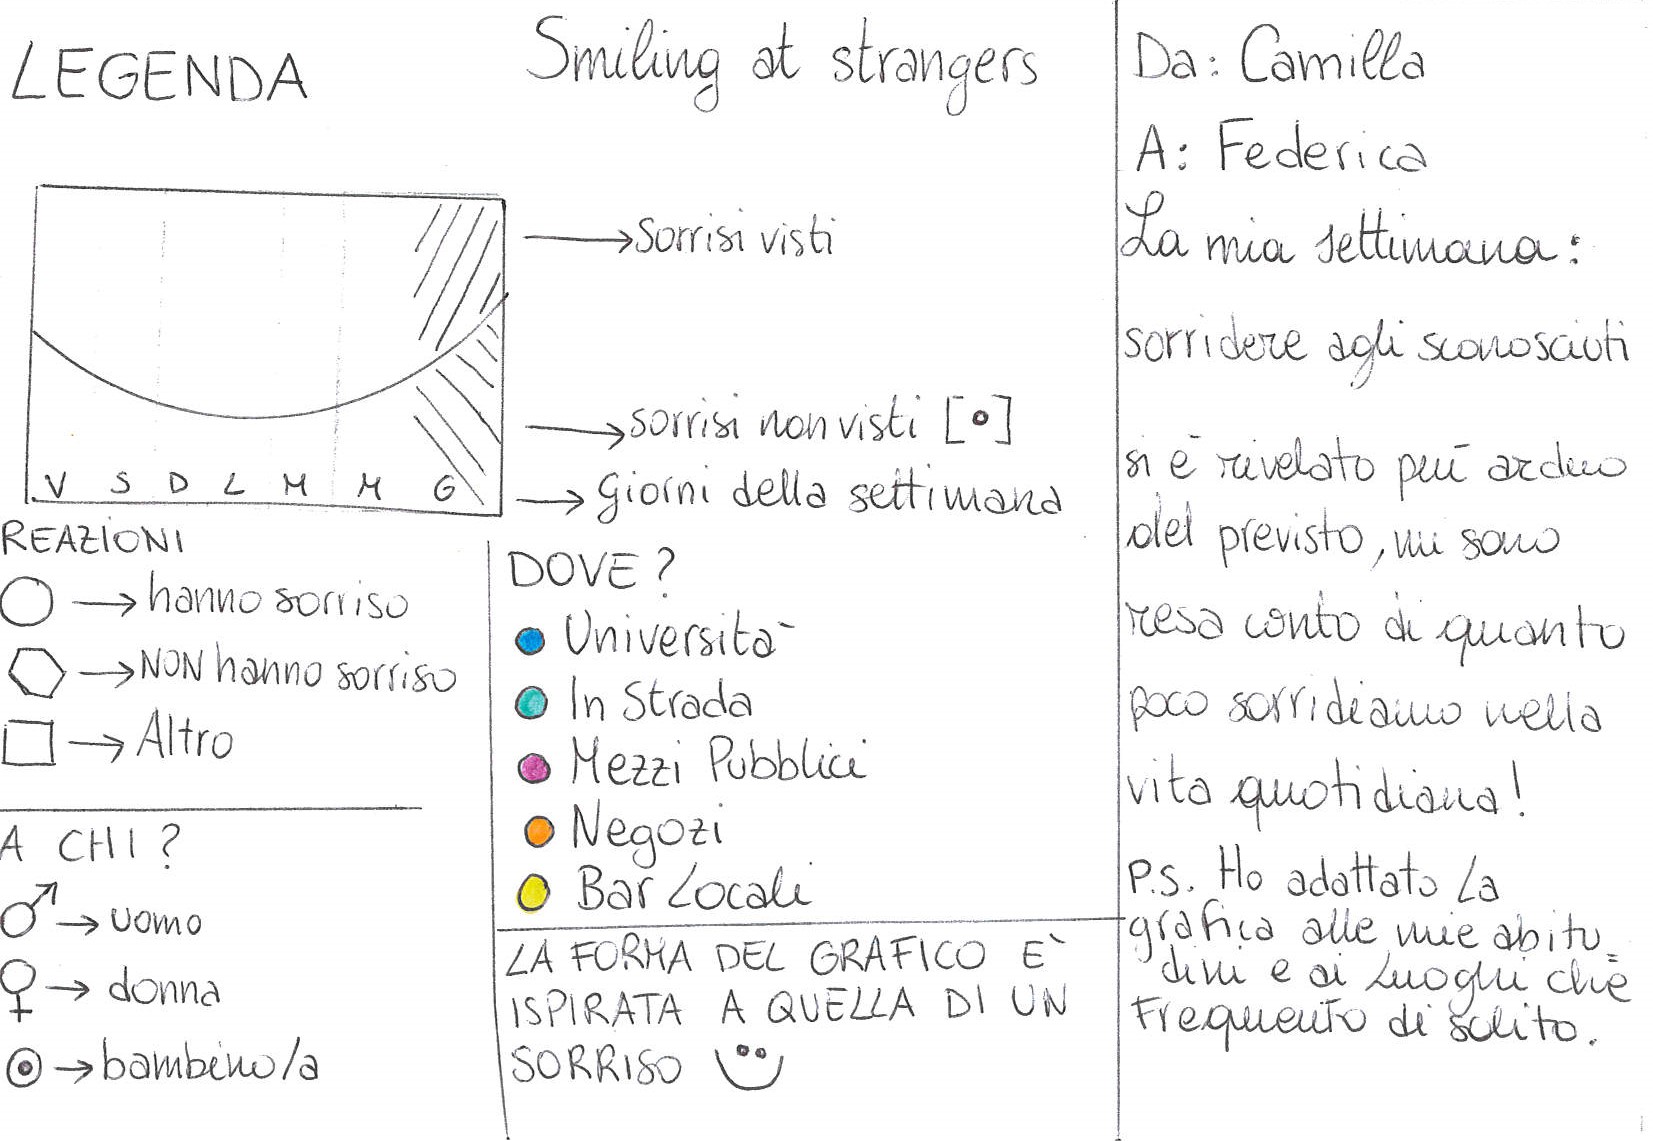 LEGENDA
Smiling at strangers
→ Sorrisi visti
→ sorrisi non visti [ ]
→ Giorni della settimana
V S D L M M G
REAZIONI
→ hanno sorriso
→ NON hanno sorriso
→ Altro
A CHI?
♂ → uomo
♀ → donna
→ bambino/a
DOVE?
Università
In Strada
Mezzi Pubblici
Negozi
Bar Locali
LA FORMA DEL GRAFICO È
ISPIRATA A QUELLA DI UN
SORRISO
Da: Camilla
A: Federica
La mia settimana:
sorridere agli sconosciuti
si è rivelato più arduo
del previsto, mi sono
resa conto di quanto
poco sorridiamo nella
vita quotidiana!
P.S. Ho adattato la
grafica alle mie abitu=
dini e ai luoghi che
frequento di solito.